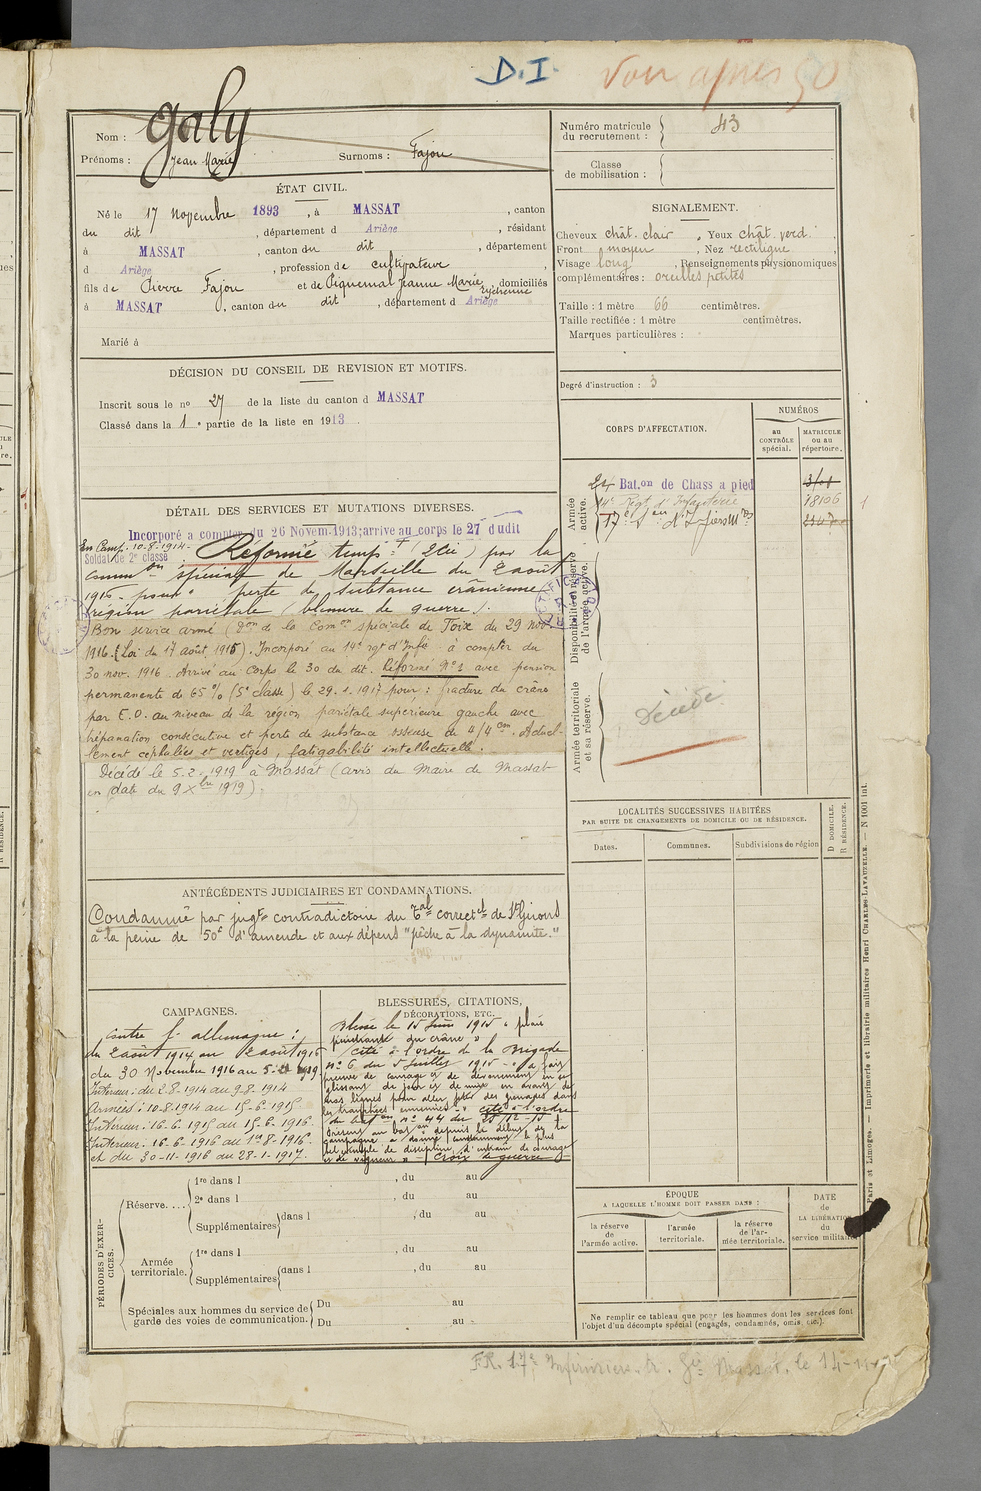 D.I.
Voir après 50
Nom : Galy
Prénoms : Jean Marie
Surnoms : Fajou
ÉTAT CIVIL.
Né le 17 Novembre 1893, à MASSAT, canton
du dit, département d Ariège, résidant
à MASSAT, canton du dit, département
d Ariège, profession de cultivateur
fils de Pierre Fajou et de Piquemal Jeanne Marie, domiciliés
à MASSAT, canton du dit, département d Ariège
Marié à
DÉCISION DU CONSEIL DE REVISION ET MOTIFS.
Inscrit sous le no 27 de la liste du canton d MASSAT
Classé dans la 1e partie de la liste en 1913.
DÉTAIL DES SERVICES ET MUTATIONS DIVERSES.
Incorporé a compter du 26 Novem.1913; arrive au corps le 27 dudit
En Camp. 10-8-1914-
Soldat de 2e classe
Réformé temp. par la
Comm.on spéciale de Marseille du 2 août
1916 - pour perte de substance crânienne
région pariétale (blessure de guerre).
Bon service armé (Don de la Comon spéciale de Foix du 29 nov.
1916. (Loi du 17 août 1915). Incorporé au 14e rgt d'Infie à compter du
30 nov. 1916. Arrivé au Corps le 30 du dit. Réformé No 1 avec pension
permanente de 65 % (5e classe) le 29.1.1917 pour : fracture du crâne
par E.O. au niveau de la région pariétale superieure gauche avec
trépanation consécutive et perte de substance osseuse de 4/4 cm. Actuel-
lement cephalées et vertiges, fatigabilité intellectuelle.
Décédé le 5.2.1919 à Massat (avis du Maire de Massat
en date du 9 Xbre 1919).
ANTÉCÉDENTS JUDICIAIRES ET CONDAMNATIONS.
Condamné par jugt contradictoire du Tal correctel de St Girons
à la peine de 50f d'amende et aux dépens "pêche à la dynamite."
CAMPAGNES.
Contre l'allemagne :
du 2 août 1914 au 2 août 1916
du 30 Novembre 1916 au 5-2-1919
Intérieur : du 2-8-1914 au 9-8-1914
Armées : 10-8-1914 au 15-6-1915
Intérieur : 16-6-1915 au 15-6-1916.
Intérieur : 16-6-1916 au 1er-8-1916.
et du 30-11-1916 au 28-1-1917.
BLESSURES, CITATIONS,
DÉCORATIONS, ETC.
Blessé le 15 Juin 1915 "plaie
pénétrante du crâne"
Cité à l'ordre de la Brigade
no 6 du 5 Juillet 1915 - "a fait
preuve de courage et de dévouement en se
glissant de jour et de nuit en avant de
nos lignes pour aller jeter des grenades dans
les tranchées ennemies -" Cité à l'ordre
du baton no 44 du 25-12-15
présent au baton depuis le début de la
campagne a donné constamment le plus
bel exemple de discipline d'entrain de courage
et de vigueur" - Croix de guerre
PÉRIODES D'EXER-
CICES.
Réserve....
1re dans l , du au
2e dans l , du au
Supplémentaires dans l , du au
Armée
territoriale.
1re dans l , du au
Supplémentaires dans l , du au
Spéciales aux hommes du service de
garde des voies de communication.
Du au
Du au
Numéro matricule
du recrutement : 43
Classe
de mobilisation :
SIGNALEMENT.
Cheveux chât. clair, Yeux chât. verd.
Front moyen, Nez rectiligne
Visage long, Renseignements physionomiques
complémentaires : oreilles petites
Taille : 1 mètre 66 centimètres.
Taille rectifiée : 1 mètre centimètres.
Marques particulières :
Degré d'instruction : 3
CORPS D'AFFECTATION.
NUMÉROS
au
CONTRÔLE
spécial.
MATRICULE
ou au
répertoire.
Armée
active.
24 Bat.on de Chass a pied
14e Régt d'Infanterie
18106
Disponibilité et réserve
de l'armée active.
RECTIFICATION
Armée territoriale
et sa réserve.
Décédé
LOCALITÉS SUCCESSIVES HABITÉES
PAR SUITE DE CHANGEMENTS DE DOMICILE OU DE RÉSIDENCE.
Dates.
Communes.
Subdivisions de région
D DOMICILE.
R RÉSIDENCE.
ÉPOQUE
A LAQUELLE L'HOMME DOIT PASSER DANS :
la réserve
de
l'armée active.
l'armée
territoriale.
la réserve
de l'ar-
mée territoriale.
DATE
de
LA LIBÉRATION
du
service militaire
Ne remplir ce tableau que pour les hommes dont les services font
l'objet d'un décompte spécial (engagés, condamnés, omis, etc.).
Paris et Limoges. — Imprimerie et librairie militaires Henri CHARLES-LAVAUZELLE. — N 1001 int.